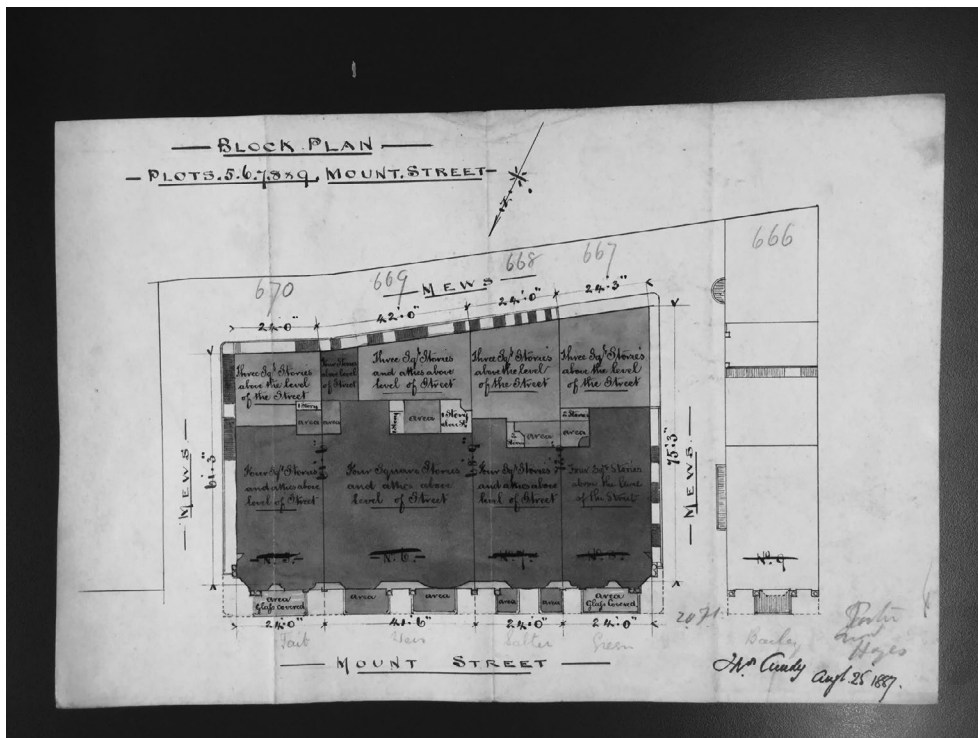 BLOCK PLAN
PLOTS. 5. 6. 7. 8 & 9. MOUNT. STREET
670
669
668
667
666
MEWS
24'.0"
42'.0"
24'.0"
24'.3"
Three Sqr Stories
above the level
of the Street
Four Stories
above level
of Street
Three Sqr Stories
and attics above
level of Street
Three Sqr Stories
above the level
of the Street
Three Sqr Stories
above the level
of the Street
1 Story
area
area
1 Story
area
1 Story
2 Stories
area
area
2 Story
MEWS
61'.3"
75'.3"
MEWS
Four Sqr Stories
and attics above
level of Street
Four Square Stories
and attics above
level of Street
Four Sqr Stories
and attics above
level of Street
Four Sqr Stories
above the level
of the Street
No. 5.
No. 6.
No. 7.
No. 8.
No. 9
area
Glass Covered
area
area
area
area
area
Glass Covered
24'.0"
41'.6"
24'.0"
24'.0"
2071
Tait
Salter
Green
Bailey
Hayes
MOUNT STREET
Thos Cundy
Augt 25 1887.